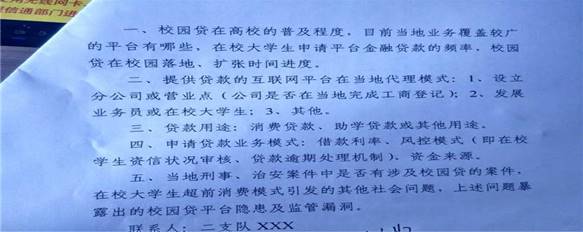 信通部门进
一、校园贷在高校的普及程度，目前当地业务覆盖较广
的平台有哪些，在校大学生申请平台金融贷款的频率，校园
贷在校园落地、扩张时间进度。
二、提供贷款的互联网平台在当地代理模式：1、设立
分公司或营业点（公司是否在当地完成工商登记）；2、发展
业务员或在校大学生；3、其他。
三、贷款用途：消费贷款、助学贷款或其他用途。
四、申请贷款业务模式：借款利率、风控模式（即在校
学生资信状况审核、贷款逾期处理机制）、资金来源。
五、当地刑事、治安案件中是否有涉及校园贷的案件，
在校大学生超前消费模式引发的其他社会问题，上述问题暴
露出的校园贷平台隐患及监管漏洞。
联系人：二支队 XXX